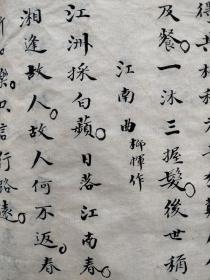 及餐。一沐三握髮。後世稱
江南曲 柳惲作
江洲採白蘋。日落江南春。
湘逢故人。故人何不返。春
樂。行路遠。